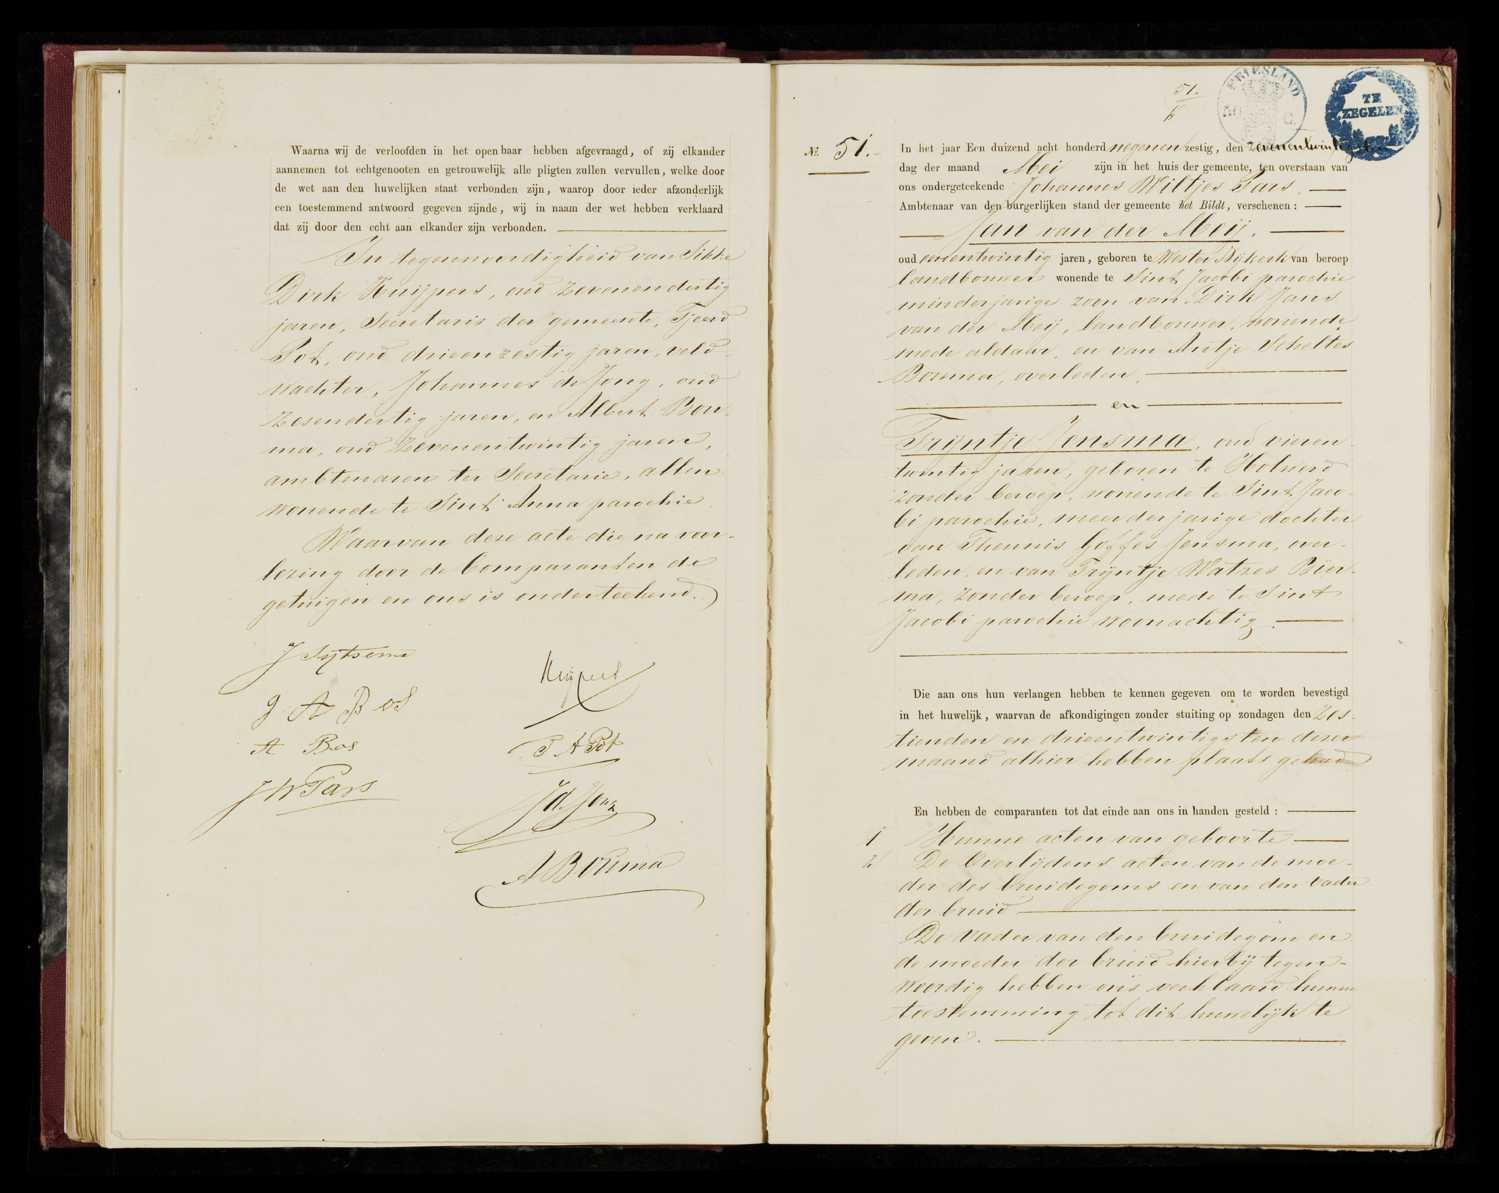 Waarna wij de verloofden in het openbaar hebben afgevraagd, of zij elkander
aannemen tot echtgenooten en getrouwelijk alle pligten zullen vervullen, welke door
de wet aan den huwelijken staat verbonden zijn, waarop door ieder afzonderlijk
een toestemmend antwoord gegeven zijnde, wij in naam der wet hebben verklaard
dat zij door den echt aan elkander zijn verbonden.
In tegenwoordigheid van Sikke
Dirk Kuijpers, oud zevenendertig
jaren, Secretaris der gemeente, Tjeerd
Pot, oud drieenzestig jaren, veld-
wachter, Johannes de Jong, oud
zesendertig jaren, en Albert Bou-
ma, oud zevenentwintig jaren,
ambtenaren ter Secretarie, allen
wonende te Sint Anna parochie.
Waarvan deze acte die na voor-
lezing door de Comparanten de
getuigen en ons is onderteekend.
J Sijtsema
J A Bos
A Bos
J W Pars
Kuijpers
T A Pot
J d Jong
A Bouma
51.
FRIESLAND
50 C.
TE
ZEGELEN
No. 51.
In het jaar Een duizend acht honderd negenen zestig, den zevenentwintigsten
dag der maand Mei zijn in het huis der gemeente, ten overstaan van
ons ondergeteekende Johannes Wiltjes Pars.
Ambtenaar van den burgerlijken stand der gemeente het Bildt, verschenen:
Jan van der Meij.
oud eenentwintig jaren, geboren te Wester Nijkerk van beroep
landbouwer wonende te Sint Jacobi parochie
minderjarige zoon van Dirk Jans
van der Meij, landbouwer, wonende
mede aldaar, en van Antje Scheltes
Bouma, overleden,
en
Trijntje Jensma, oud vieren-
twintig jaren, geboren te Holwerd
zonder beroep, wonende te Sint Jaco-
bi parochie, meerderjarige dochter
van Theunis Goffes Jensma, over-
leden, en van Trijntje Watzes Bier-
ma, zonder beroep, mede te Sint
Jacobi parochie woonachtig.
Die aan ons hun verlangen hebben te kennen gegeven om te worden bevestigd
in het huwelijk, waarvan de afkondigingen zonder stuiting op zondagen den zes-
tienden en drieentwintigsten dezer
maand alhier hebben plaats gehad
En hebben de comparanten tot dat einde aan ons in handen gesteld:
1 Hunne acten van geboorte
2 De Overlijdens acten van de moe-
der des bruidegoms en van den vader
der bruid
De Vader van den bruidegom en
de moeder der bruid hierbij tegen-
woordig hebben ons verklaard hunne
toestemming tot dit huwelijk te
geven.